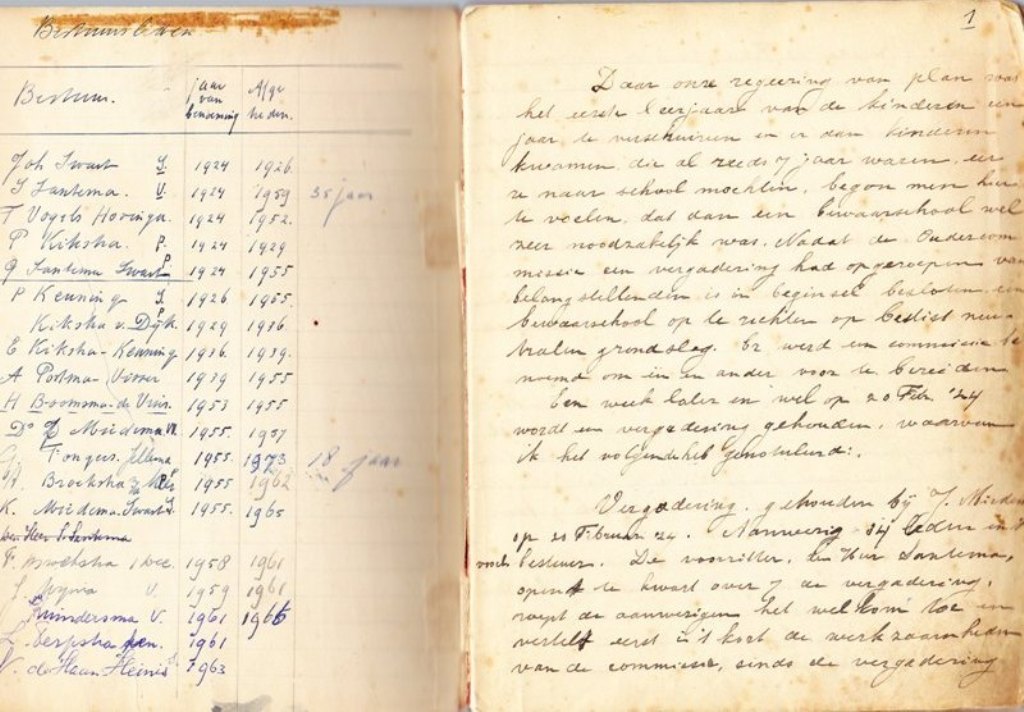 Bestuursleden
Bestuur. jaar van benoeming Afge treden.
Joh Swart S. 1924 1926.
S Santema. V. 1924 1959 35 jaar
T Vogels Hovinga. 1924 1952.
P Kiksha. P. 1924 1929
G Santema Swart P 1924 1955
P Kenning S. 1926 1955.
Kiksha v. Dijk. P 1929 1936
E Kiksha-Kenning 1936. 1939.
A Postma Visser 1939 1955
H Boomsma-de Vries. 1953 1955
Ds Miedema 1955. 1957
Tonges. Jellema 1955. 1973 18 jaar
Broeksha 1955 1962
K. Miedema. Swart S. 1955. 1965
den Heer S. Santema
F. 1958 1961
J. Wijma V. 1959 1961
Ruindersma V. 1961 1966
L. Terpstra pen. 1961
V. de Haan Heinis S. 1963
1
Daar onze regeering van plan was
het eerste leerjaar van de kinderen een
jaar te verschuiven en er dan kinderen
kwamen die al reeds 7 jaar waren, eer
ze naar school mochten, begon men hier
te voelen, dat dan een bewaarschool wel
zeer noodzakelijk was. Nadat de Oudercom
missie een vergadering had opgeroepen van
belangstellenden is in beginsel besloten, een
bewaarschool op te richten op beslist neu-
tralen grondslag. Er werd een commissie be
noemd om in en ander voor te bereiden
Een week later en wel op 20 Febr. '24
wordt een vergadering gehouden, waarvan
ik het volgende heb genotuleerd:.
Vergadering, gehouden bij J. Mieden
op 20 Februari 24. Aanwezig 14 leden en 't
voorl. bestuur. De voorzitter, de Heer Santema,
opent te kwart over 7 de vergadering,
roept de aanwezigen het welkom toe en
vertelt eerst in 't kort de werkzaamheden
van de commissie, sinds de vergadering